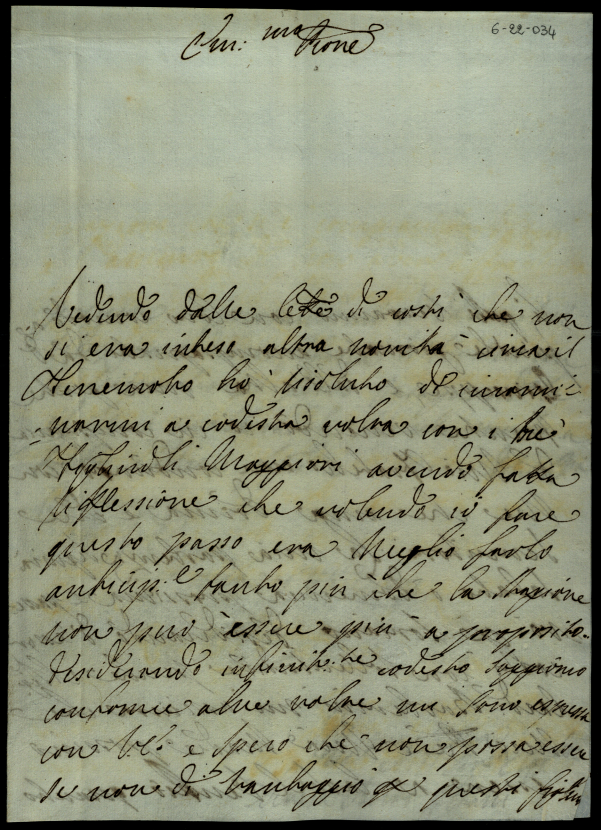 6-22-034
Em: mo Prone
Vedendo dalle lettē di costì che non
si era inteso altra novità circa il
Terremoto ho risoluto di incami-
narmi a codesta volta con i trè
Figliuoli Maggiori avendo fatta
riflessione che volendo io fare
questo passo era Meglio farlo
anticip.e tanto più che la stagione
non può essere più a proposito
desiderando infinit.te codesto soggiorno
conforme altre volte mi sono espressa
con V.E. e spero che non possa essere
se non di vantaggio questi